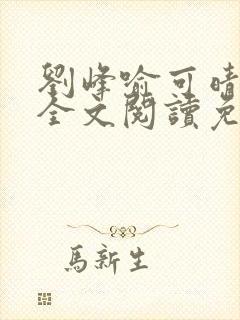 劉峰喻可晴
全文閱讀免
馬新生